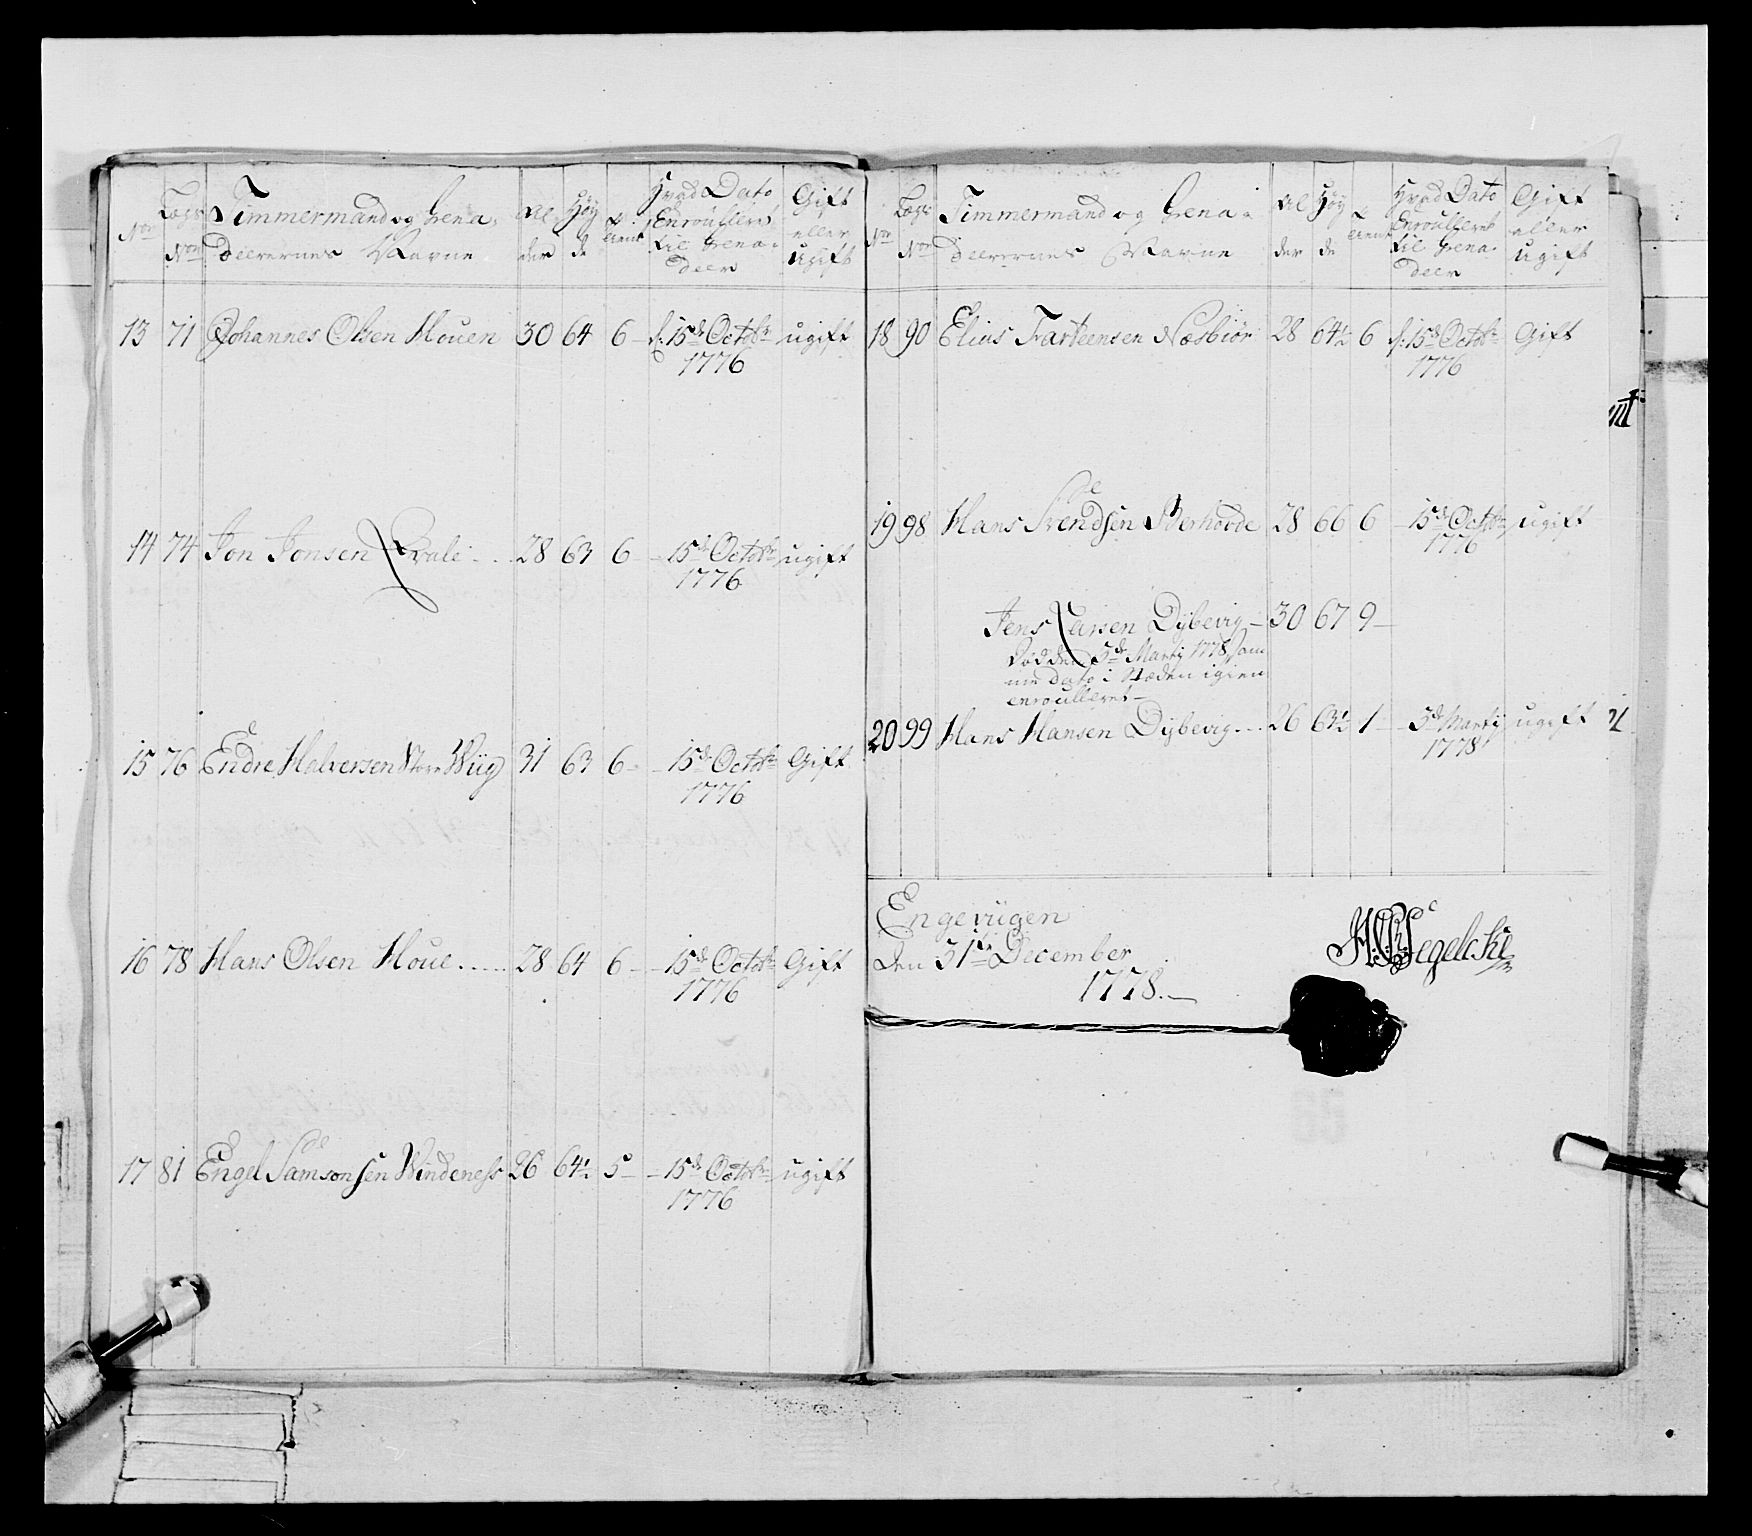 Nor Lægs Nor Timmermand og Grena-deerernes Navne Alder Høyde Hvad Dato Enroulleret til Grenadeer Gift eller ugift
13 71 Johannes Olsen Houen 30 64 6 d: 15de Octobr 1776 ugift
14 74 Jon Jonsen 28 63 6 15de Octobr 1776 ugift
15 76 Endre Halversen Store Wiig 31 63 6 15de Octobr 1776 Gift
16 78 Hans Olsen Houe 28 64 6 15de Octobr 1776 Gift
17 81 Engel Samsonsen Windeness 26 64½ 5 15de Octobr 1776 ugift
Nor Lægs Nor Timmermand og Grena-deerernes Navne Alder Høyde Hvad Dato Enroulleret til Grenadeer Gift eller ugift
18 90 Elius Tarteensen Næsbiør 28 64½ 6 d: 15de Octobr 1776 Gift
19 98 Hans Svendsen Berhovde 28 66 6 15de Octobr 1776 ugift
Jens Larsen Dybevig 30 67 9
Død den 5de Martj 1778 Sam
me dato i Stæden igien
enroulleret
20 99 Hans Hansen Dybevig 26 63½ 1 5de Martj 1778 ugift
Engeviigen
den 31te December
1778.
Segelcke